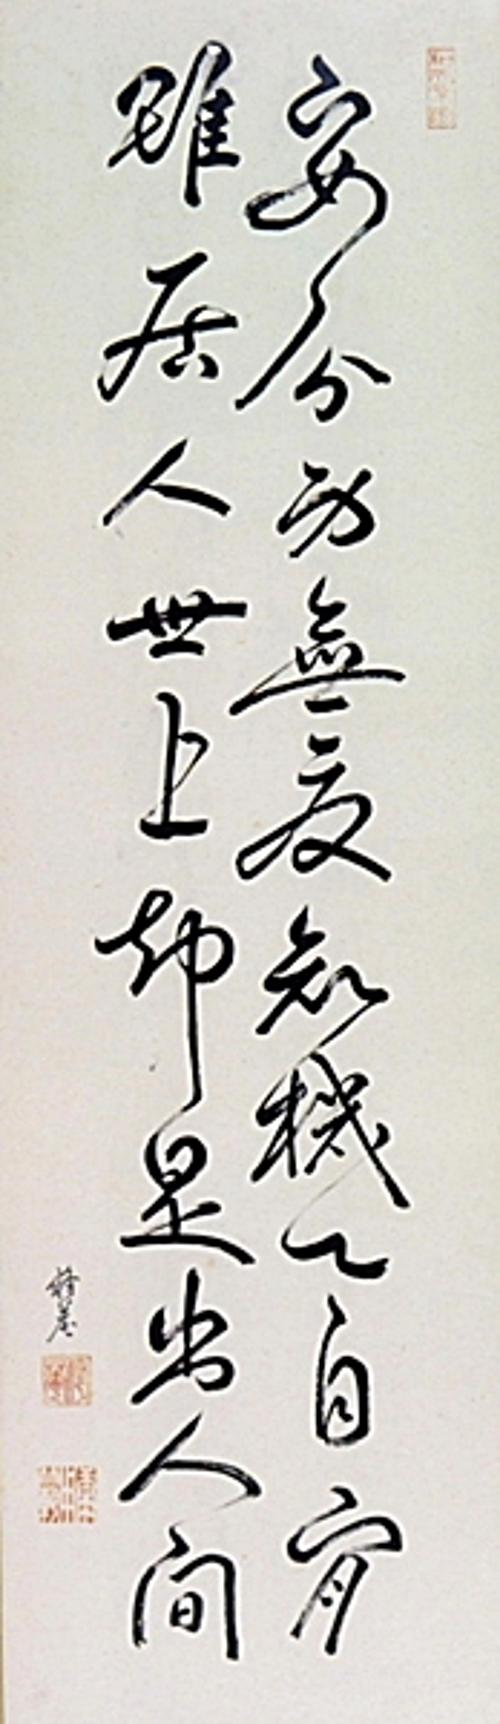 安分身無辱知機心自閑
雖居人世上却是出人間